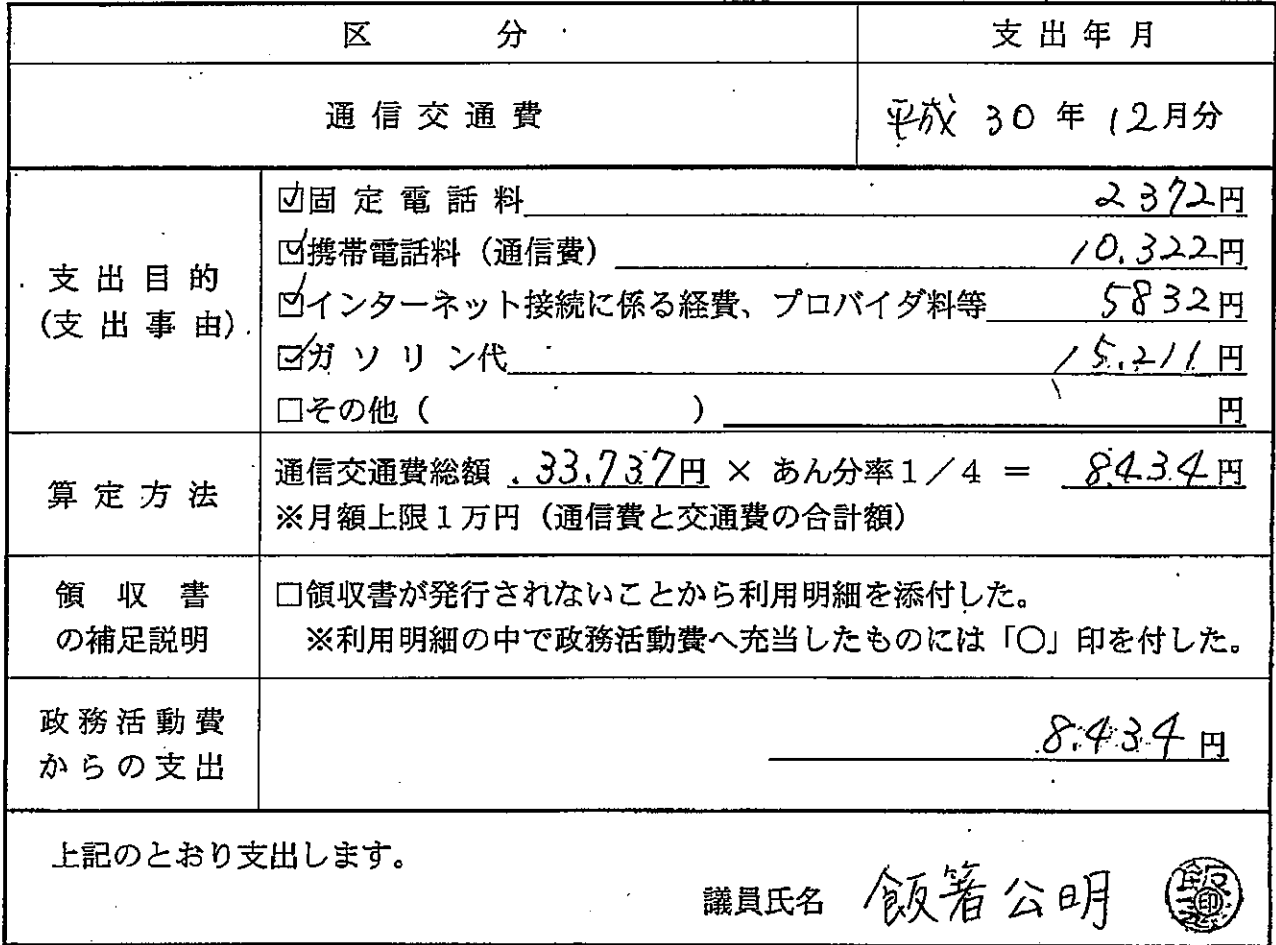 区分 支出年月
通信交通費 平成 30 年 12月分
支出目的
(支出事由)
☑固定電話料 2372円
☑携帯電話料（通信費） 10.322円
☑インターネット接続に係る経費、プロバイダ料等 5832円
☑ガソリン代 15.211円
□その他（ ） 円
算定方法
通信交通費総額 33.737円 × あん分率1／4 ＝ 8434円
※月額上限1万円（通信費と交通費の合計額）
領収書
の補足説明
□領収書が発行されないことから利用明細を添付した。
※利用明細の中で政務活動費へ充当したものには「○」印を付した。
政務活動費
からの支出
8.434円
上記のとおり支出します。
議員氏名 飯箸公明 印